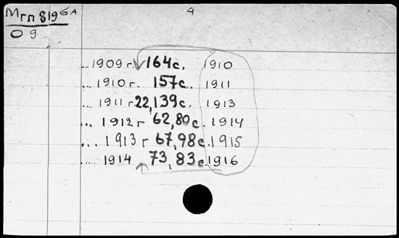 Мгп 819 6А
4
О 9
... 1909 г. 164с. 1910
... 1910 г. 157с. 1911
... 1911 г. 22,139с. 1913
... 1912 г 62,80с. 1914
... 1913 г 67,98с. 1915
... 1914 73, 83с. 1916